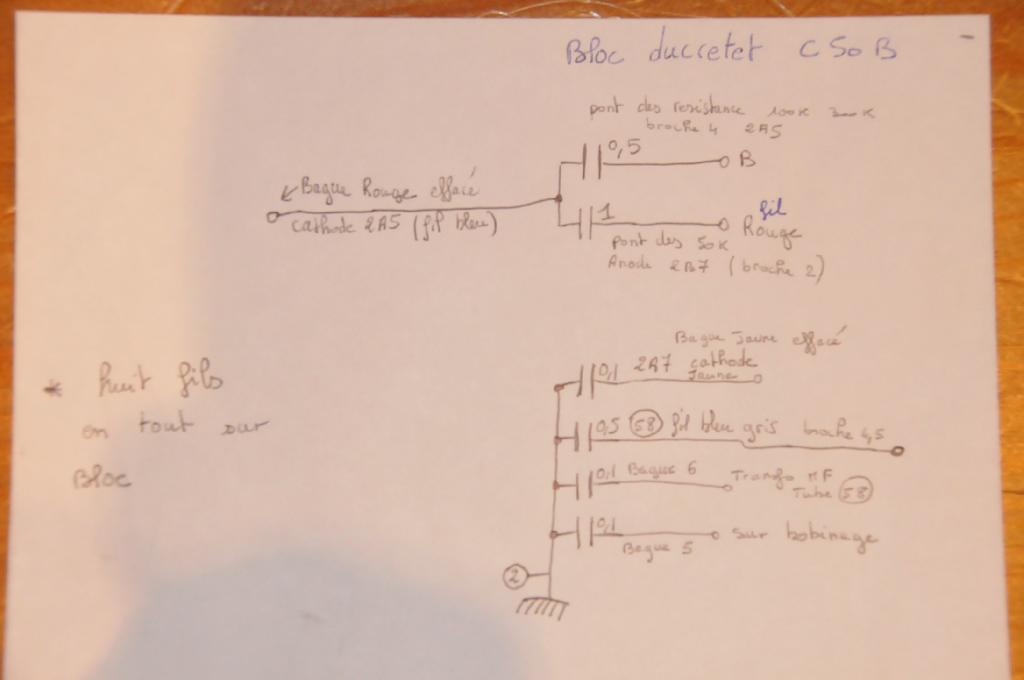 Bloc ducretet C50B
pont des resistance 100K 300K
broche 4 2A5
0,5
B
Bague Rouge effacé
cathode 2A5 (fil bleu)
1
fil
Rouge
pont des 50K
Anode 2B7 (broche 2)
Bague Jaune effacé
0,1 2A7 cathode
Jaune
* huit fils
en tout sur
Bloc
0,5 58 fil bleu gris broche 4,5
0,1 Bague 6 Transfo MF
Tube 58
0,1
Bague 5 sur bobinage
2